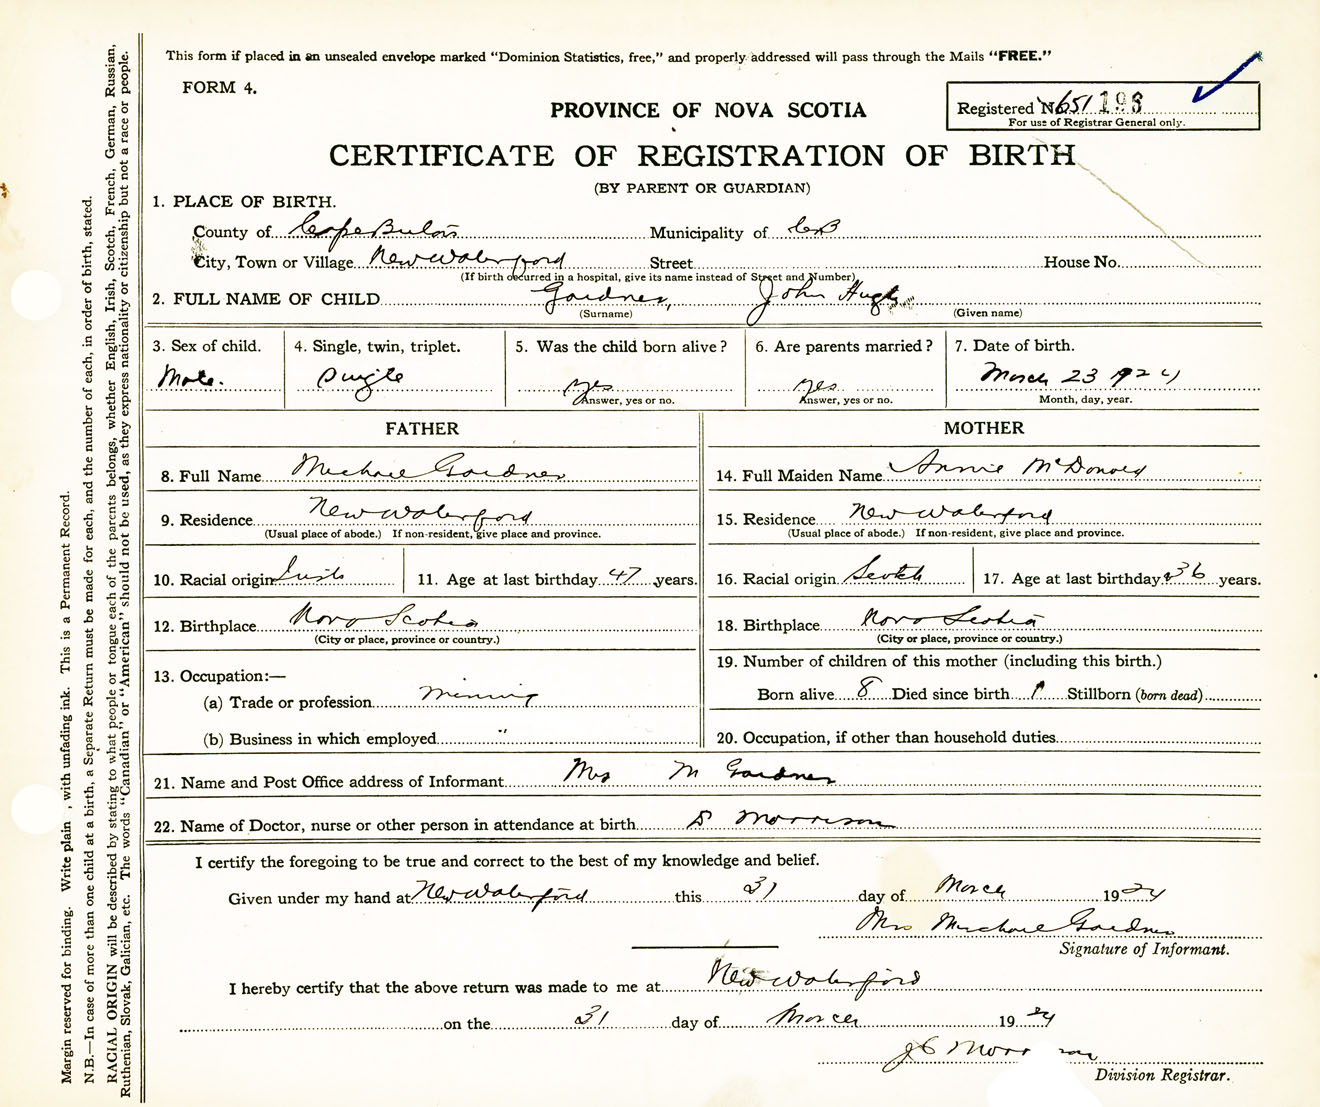 This form if placed in an unsealed envelope marked "Dominion Statistics, free," and properly addressed will pass through the Mails "FREE."
FORM 4.
PROVINCE OF NOVA SCOTIA
Registered No. 651198
For use of Registrar General only.
CERTIFICATE OF REGISTRATION OF BIRTH
(BY PARENT OR GUARDIAN)
1. PLACE OF BIRTH.
County of Cape Breton Municipality of CB
City, Town or Village New Waterford Street House No.
(If birth occurred in a hospital, give its name instead of Street and Number)
2. FULL NAME OF CHILD Gardner, John Hugh
(Surname) (Given name)
3. Sex of child. 4. Single, twin, triplet. 5. Was the child born alive? 6. Are parents married? 7. Date of birth.
Male. Single yes yes March 23 1924
Answer, yes or no. Answer, yes or no. Month, day, year.
FATHER MOTHER
8. Full Name Michael Gardner 14. Full Maiden Name Annie McDonald
9. Residence New Waterford 15. Residence New Waterford
(Usual place of abode.) If non-resident, give place and province. (Usual place of abode.) If non-resident, give place and province.
10. Racial origin Irish 11. Age at last birthday 47 years. 16. Racial origin Scotch 17. Age at last birthday 36 years.
12. Birthplace Nova Scotia 18. Birthplace Nova Scotia
(City or place, province or country.) (City or place, province or country.)
13. Occupation:— 19. Number of children of this mother (including this birth.)
(a) Trade or profession Minning Born alive 8 Died since birth 1 Stillborn (born dead)
(b) Business in which employed " 20. Occupation, if other than household duties
21. Name and Post Office address of Informant Mrs M Gardner
22. Name of Doctor, nurse or other person in attendance at birth Dr Morrison
I certify the foregoing to be true and correct to the best of my knowledge and belief.
Given under my hand at New Waterford this 31 day of March 1924
Mrs Michael Gardner
Signature of Informant.
I hereby certify that the above return was made to me at New Waterford
on the 31 day of March 1924
Division Registrar.
Margin reserved for binding. Write plain , with unfading ink. This is a Permanent Record.
N.B.—In case of more than one child at a birth, a Separate Return must be made for each, and the number of each, in order of birth, stated.
RACIAL ORIGIN will be described by stating to what people or tongue each of the parents belongs, whether English, Irish, Scotch, French, German, Russian,
Ruthenian, Slovak, Galician, etc. The words "Canadian" or "American" should not be used, as they express nationality or citizenship but not a race or people.